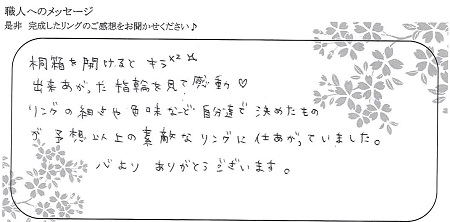 職人へのメッセージ
是非 完成したリングのご感想をお聞かせください♪
桐箱を開けると キラx2
出来あがった 指輪を見て 感動♡
リングの細さや色味など自分達で決めたもの
が 予想以上の素敵なリングに仕あがっていました。
心より ありがとうございます。